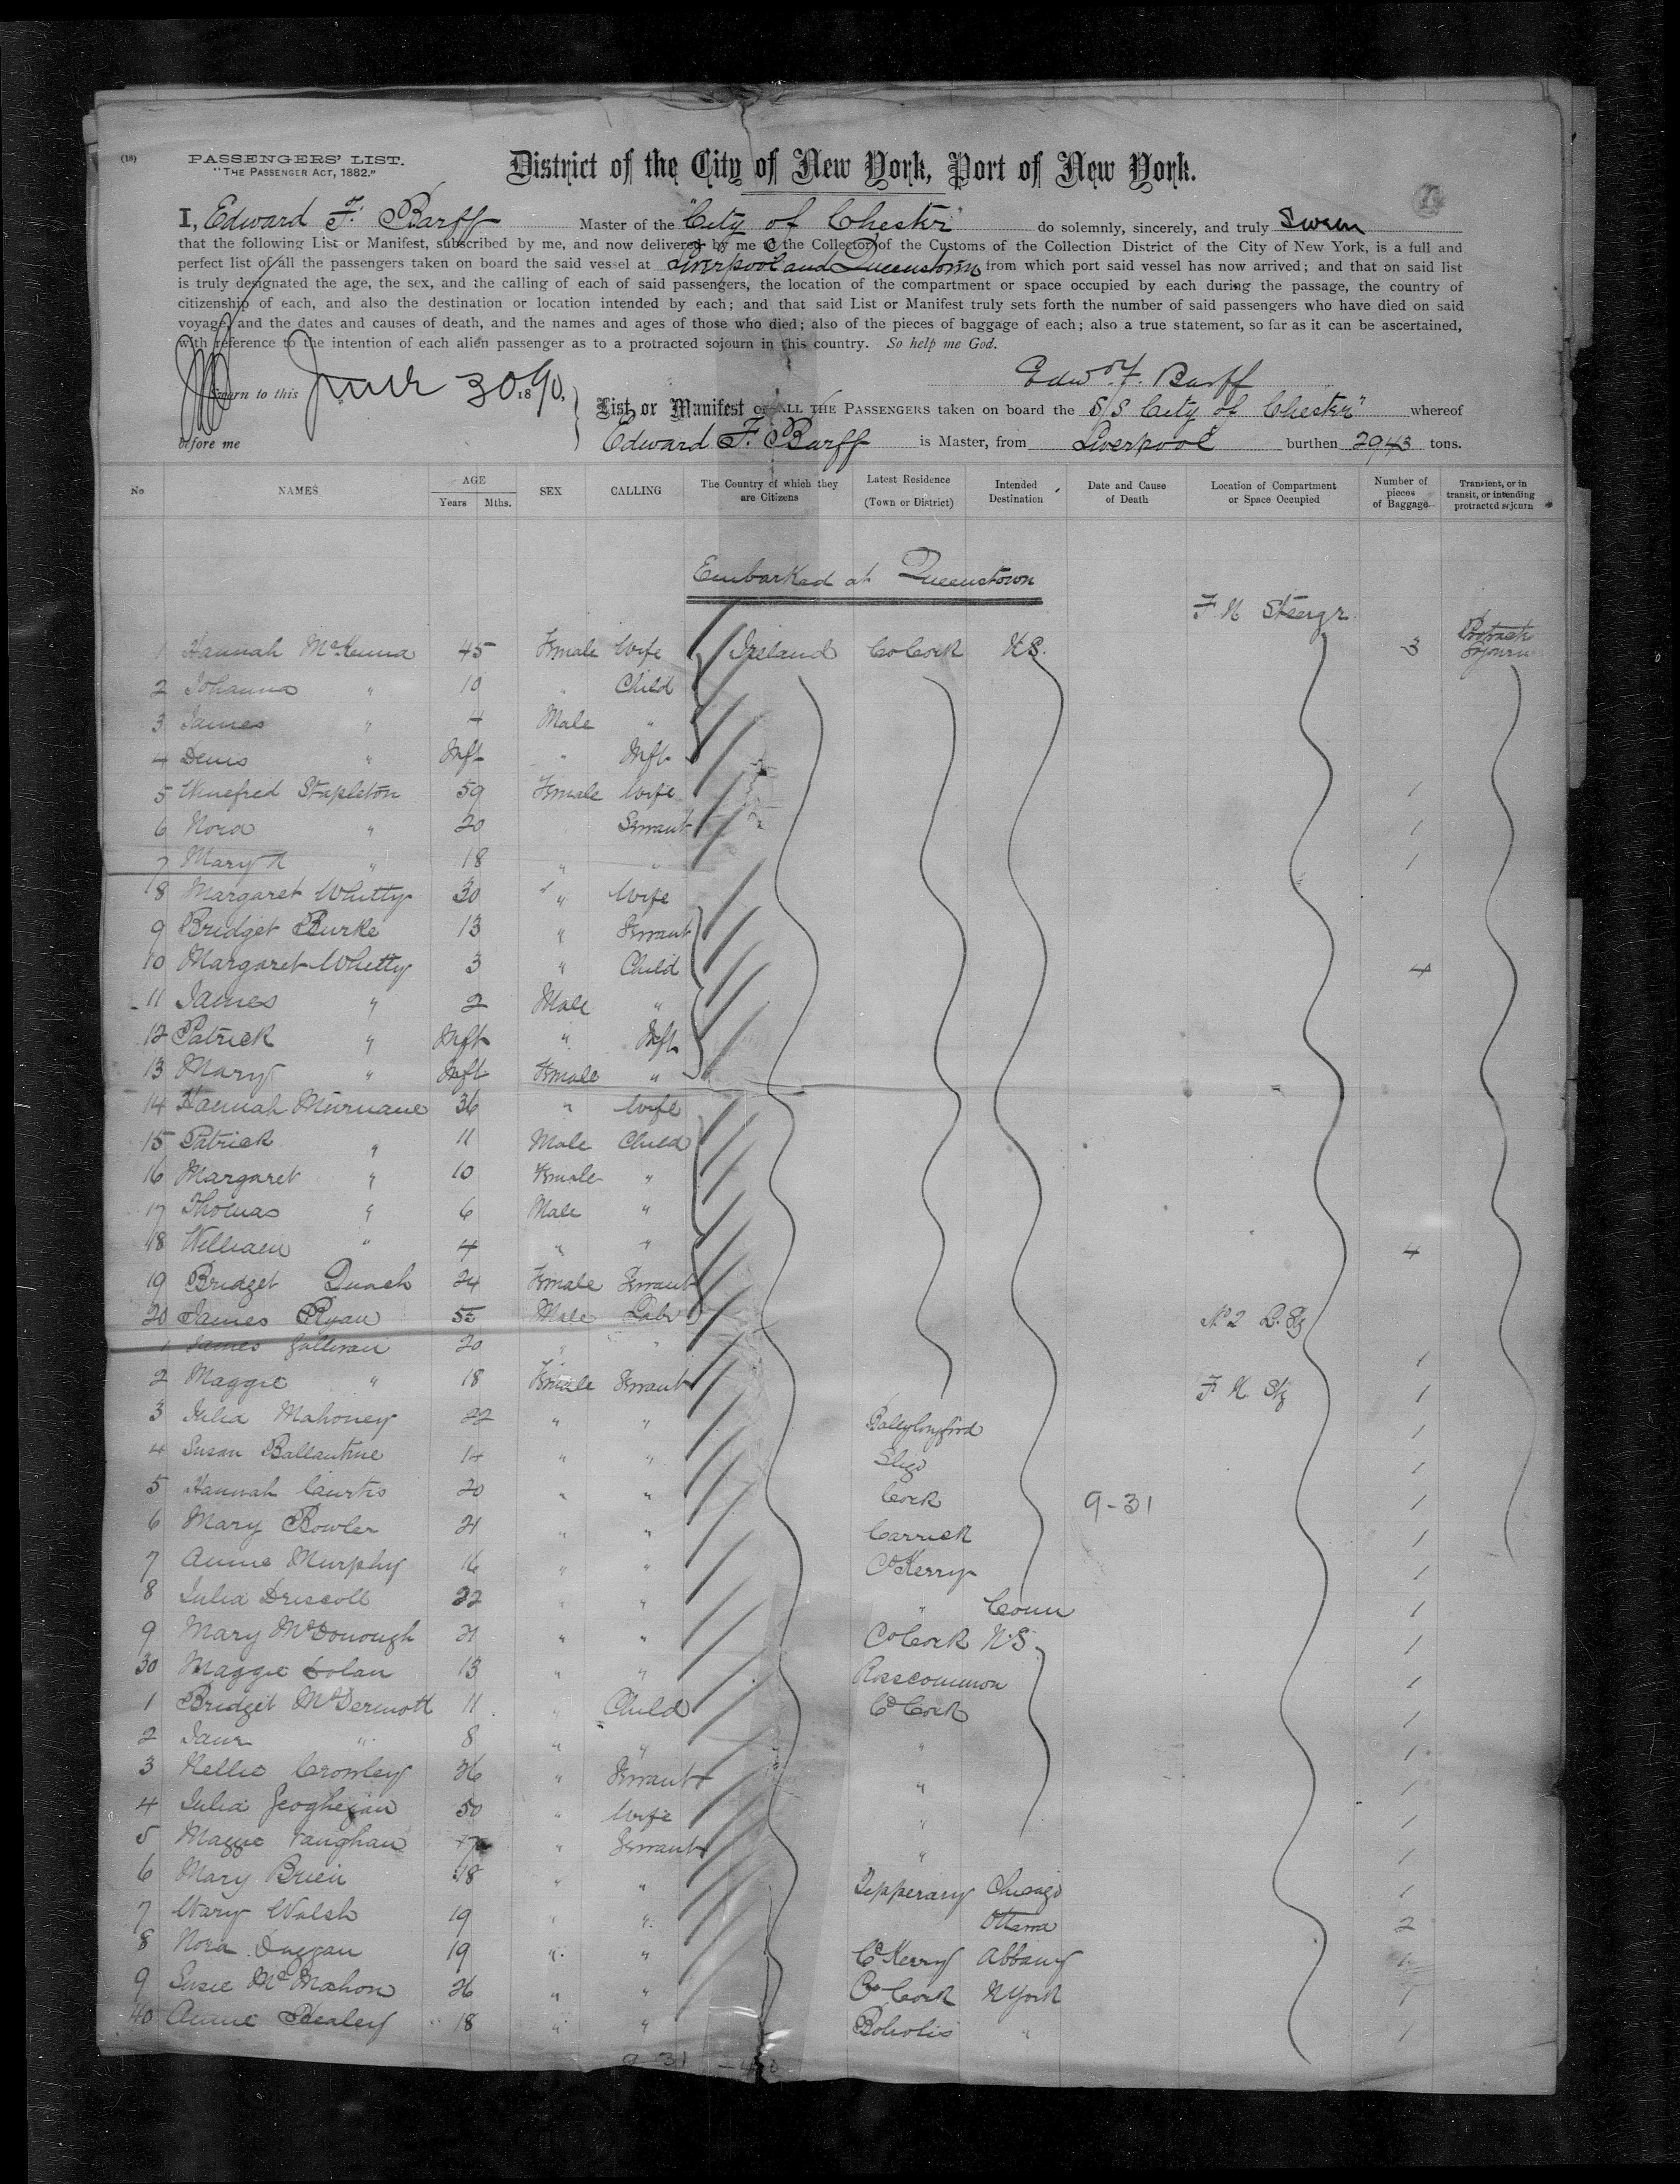 (18)
PASSENGERS' LIST.
"THE PASSENGER ACT, 1882."
District of the City of New York, Port of New York.
I, Edward F. Barff Master of the "City of Chester" do solemnly, sincerely, and truly Swear
that the following List or Manifest, subscribed by me, and now delivered by me to the Collector of the Customs of the Collection District of the City of New York, is a full and
perfect list of all the passengers taken on board the said vessel at Liverpool and Queenstown from which port said vessel has now arrived; and that on said list
is truly designated the age, the sex, and the calling of each of said passengers, the location of the compartment or space occupied by each during the passage, the country of
citizenship of each, and also the destination or location intended by each; and that said List or Manifest truly sets forth the number of said passengers who have died on said
voyage, and the dates and causes of death, and the names and ages of those who died; also of the pieces of baggage of each; also a true statement, so far as it can be ascertained,
with reference to the intention of each alien passenger as to a protracted sojourn in this country. So help me God.
Sworn to this June 30 1890.
before me
Edwd F. Barff
List or Manifest OF ALL THE PASSENGERS taken on board the S/S City of Chester" whereof
Edward F. Barff is Master, from Liverpool burthen 2943 tons.
No NAMES AGE Years Mths. SEX CALLING The Country of which they are Citizens Latest Residence (Town or District) Intended Destination Date and Cause of Death Location of Compartment or Space Occupied Number of pieces of Baggage Transient, or in transit, or intending protracted sojourn
Embarked at Queenstown
F. H Steerge
1 Hannah McKenna 45 Female Wife Ireland Co Cork U.S. 3 Protract Sojourn
2 Johanna " 10 " Child
3 James " 4 Male "
4 Denis " Inft " Inft
5 Winefred Stapleton 59 Female Wife 1
6 Nora " 20 Servant 1
7 Mary A " 18 " " 1
8 Margaret Whitty 30 " Wife
9 Bridget Burke 13 " Servant
10 Margaret Whitty 3 " Child 4
11 James " 2 Male "
12 Patrick " Inft " Inft
13 Mary " Inft Female "
14 Hannah Murnane 36 " Wife
15 Patrick " 11 Male Child
16 Margaret " 10 Female "
17 Thomas " 6 Male "
18 William " 4 " " 4
19 Bridget 24 Female Servant
20 James Ryan 52 Male Labr No 2 L. Stg
1 James Sullivan 20 " " 1
2 Maggie " 18 Female Servant F. H. Stg 1
3 Julia Mahoney 22 " " Ballylongford 1
4 Susan Ballantine 14 " " Sligo 1
5 Hannah 20 " " Cork 9-31 1
6 Mary Bowler 21 " " Carrick 1
7 Annie Murphy 16 " " Co Kerry 1
8 Julia Driscoll 22 " " " Conn 1
9 Mary McDonough 21 " " Co Cork U.S. 1
30 Maggie Dolan 13 " " Roscommon 1
1 Bridget McDermott 11 " Child Co Cork 1
2 Jane " 8 " " " 1
3 Nellie Crowley 26 " Servant " 1
4 Julia Geoghegan 50 " Wife " 1
5 Maggie Vaughan 17 " Servant " 1
6 Mary Brien 18 " " Tipperary Chicago 1
7 Mary Walsh 19 " " Ottawa 2
8 Nora Duggan 19 " " Co Kerry Albany 1
9 Susie McMahon 26 " " Co Cork N York 1
40 Annie Healey 18 " " Boholis " 1
9 31 - 40